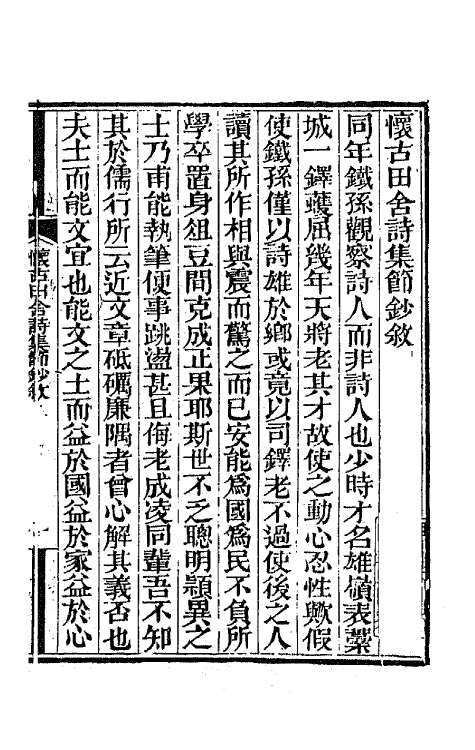 懷古田舍詩集節鈔敘
同年鐵孫觀察詩人而非詩人也少時才名雄嶺表槖
城一鐸蠖屈幾年天將老其才故使之動心忍性歟假
使鐵孫僅以詩雄於鄉或竟以司鐸老不過使後之人
讀其所作相與震而驚之而已安能爲國爲民不負所
學卒置身俎豆間克成正果耶斯世不乏聰明穎異之
士乃甫能執筆便事跳盪甚且侮老成凌同輩吾不知
其於儒行所云近文章砥礪廉隅者曾心解其義否也
夫士而能文宜也能文之士而益於國益於家益於心
懷古田舍詩集節鈔敘
一